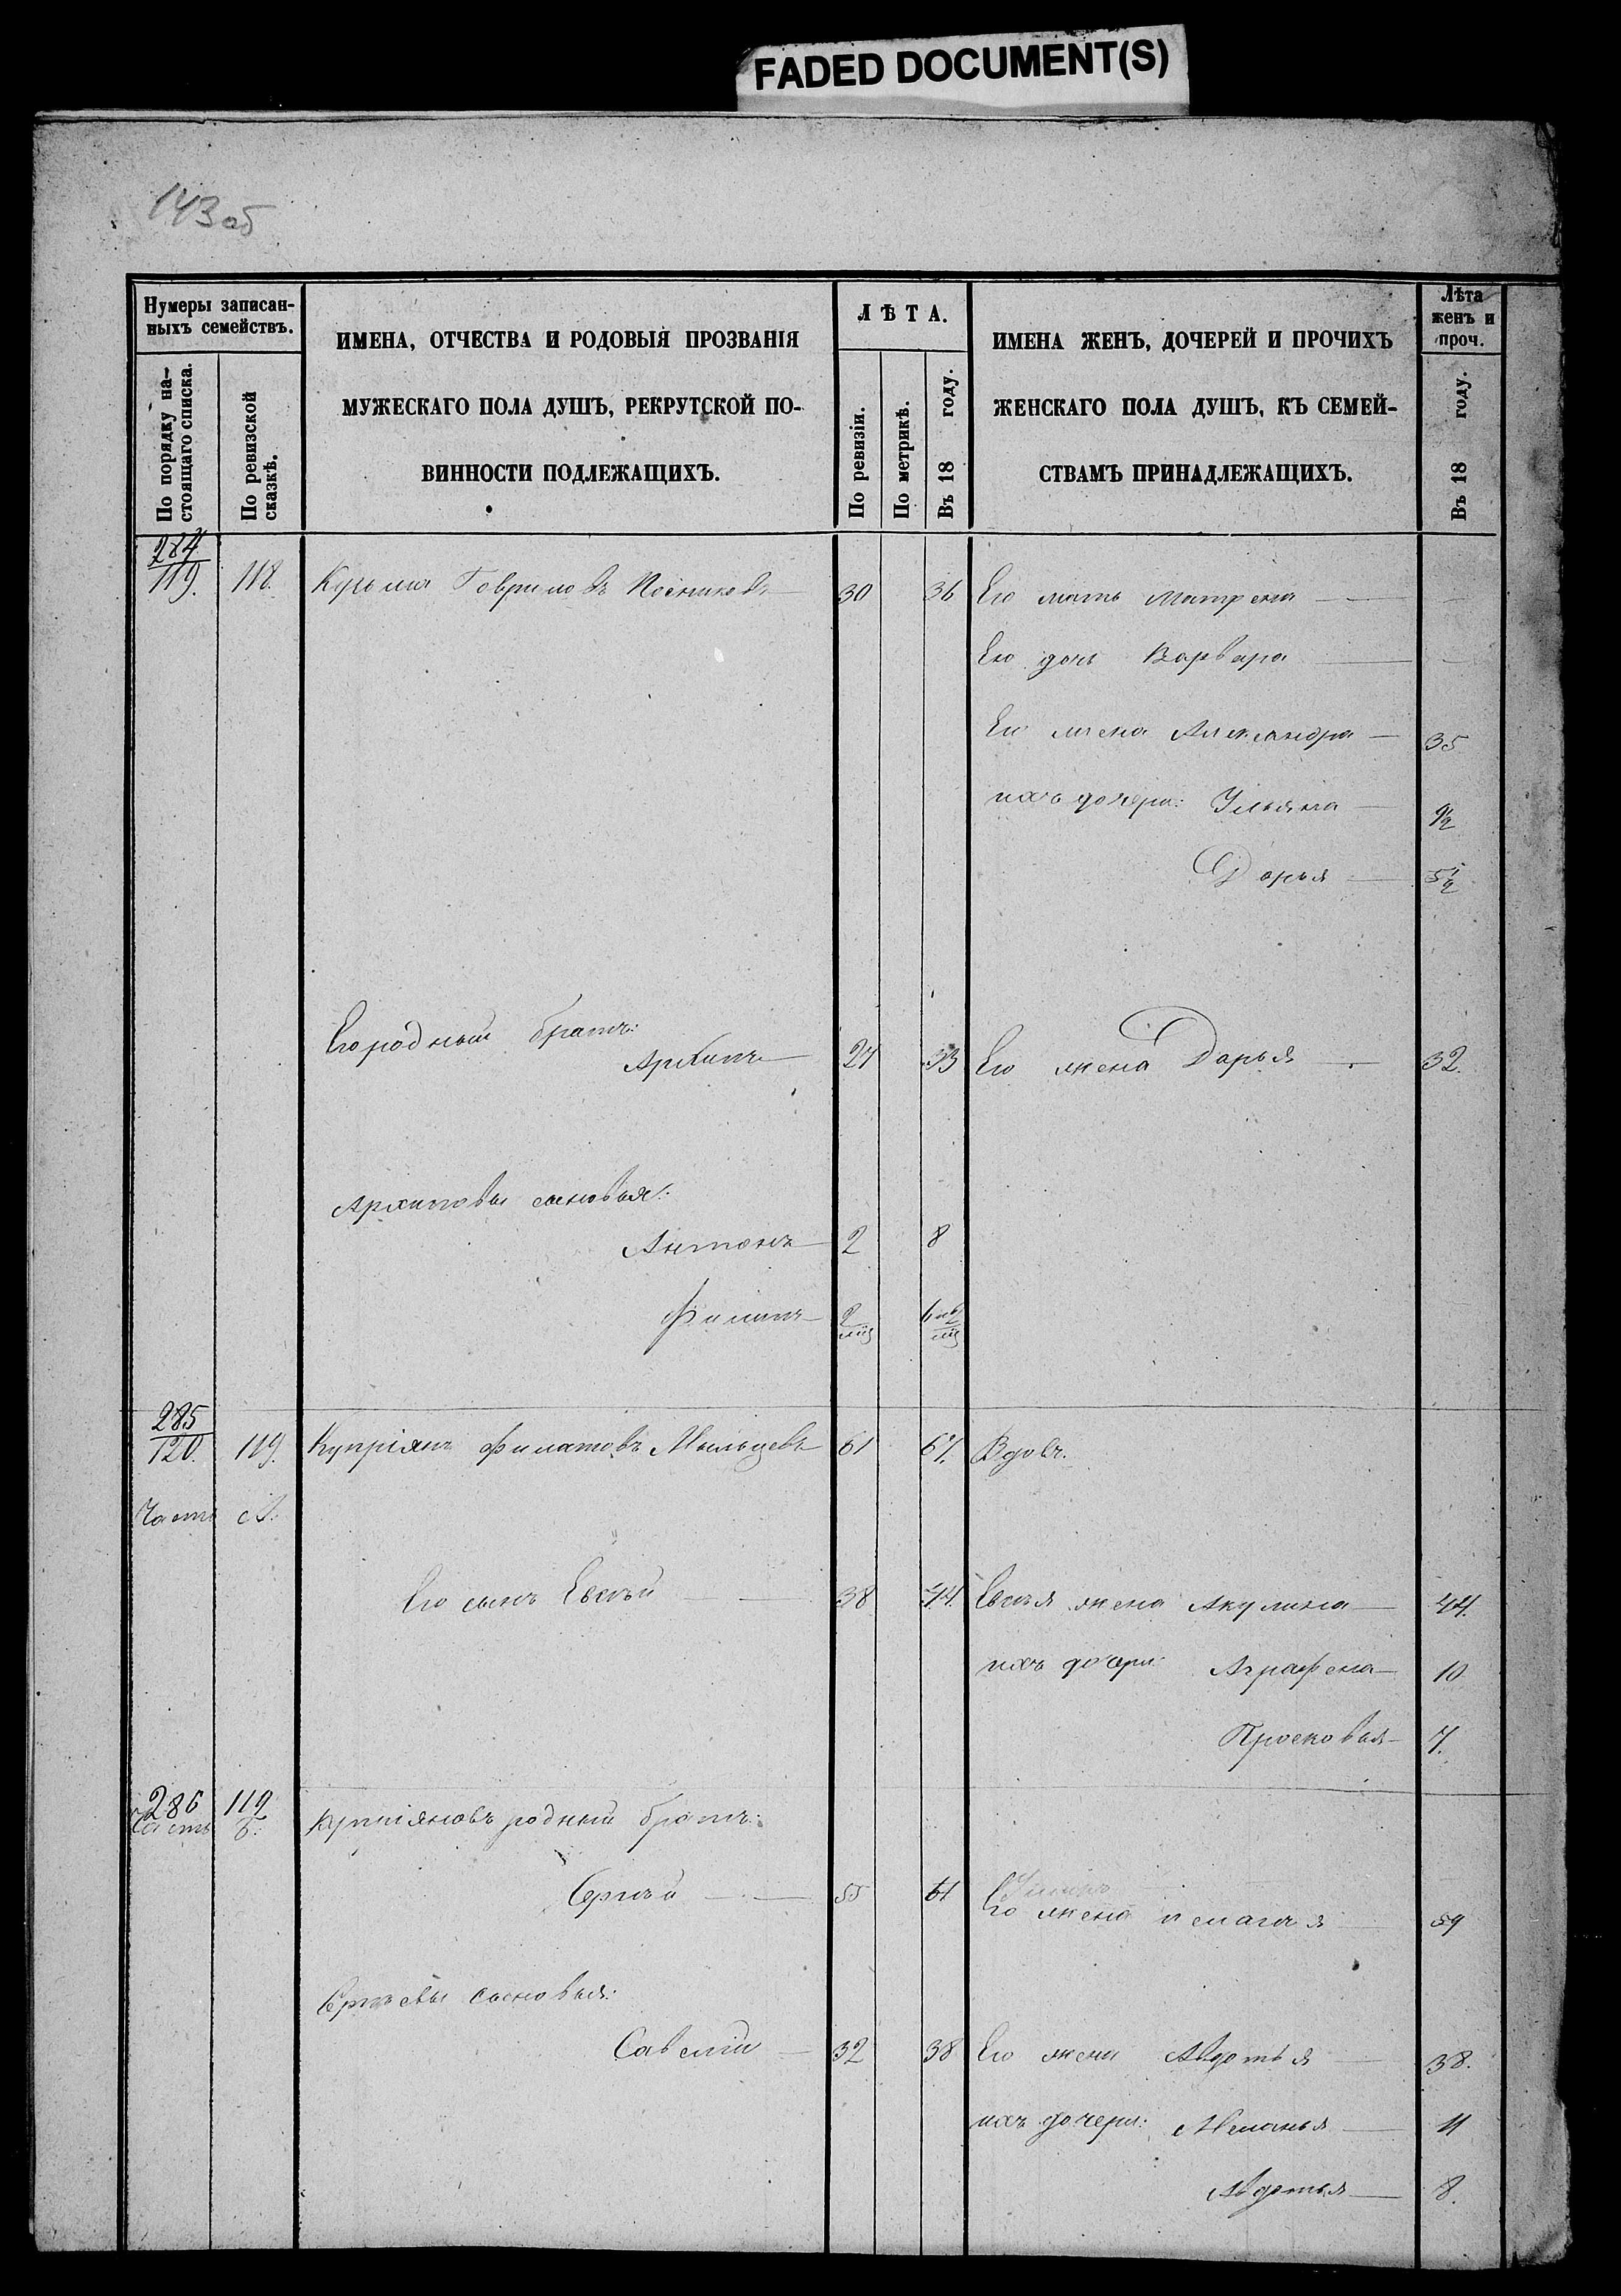 FADED DOCUMENT(S)
143 об
Нумеры записан-
ныхъ семействъ.
По порядку на-
стоящаго списка.
По ревизской
сказкѣ.
ИМЕНА, ОТЧЕСТВА И РОДОВЫЯ ПРОЗВАНІЯ
МУЖЕСКАГО ПОЛА ДУШЪ, РЕКРУТСКОЙ ПО-
ВИННОСТИ ПОДЛЕЖАЩИХЪ.
ЛѢТА.
По ревизіи.
По метрикѣ.
Въ 18 году.
ИМЕНА ЖЕНЪ, ДОЧЕРЕЙ И ПРОЧИХЪ
ЖЕНСКАГО ПОЛА ДУШЪ, КЪ СЕМЕЙ-
СТВАМЪ ПРИНАДЛЕЖАЩИХЪ.
Лѣта
женъ и
проч.
Въ 18 году.
284
119. 118. Кузьма Гавриловъ 30 36 Его мать Матрена —
Его дочь Варвара —
Его жена Александра — 35
ихъ дочери: Ульяна — 9½
Дарья — 5½
Его родный братъ:
Архипъ — 27 33 Его жена Дарья — 32.
Архиповы сыновья:
Антонъ — 2 8
Филипъ — 2
285
120. 119. Купріянъ Филатовъ Мыльцевъ 61 67. Вдовъ.
Часть А.
Его сынъ Евсѣй — 38 44. Евсѣя жена Акулина — 44.
ихъ дочери: Аграфена — 10
Просковья — 7.
286 119
Часть Б. Купріяновъ родный братъ:
Сергѣй — 55 61
Его жена Пелагѣя — 59
Сергѣевы сыновья:
Савелій — 32 38 Его жена Авдотья — 38.
ихъ дочери: Меланья — 11
Авдотья — 8.